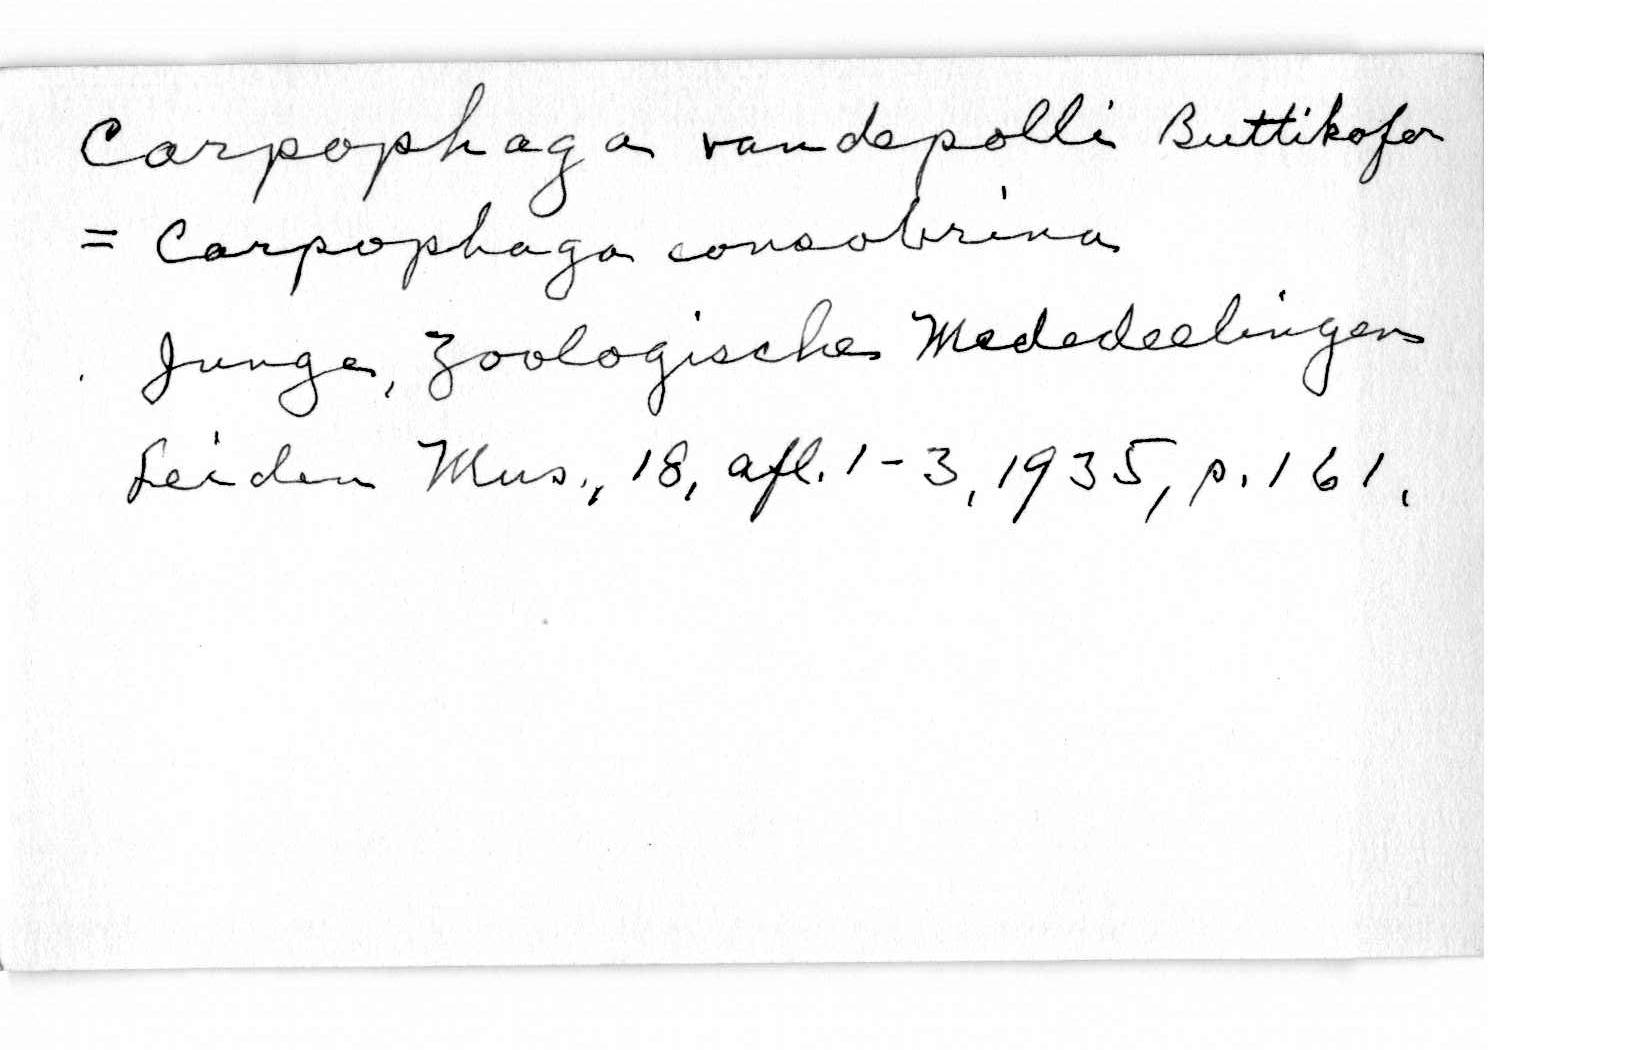 Carpophaga vandepolli Buttikofer
= Carpophaga consobrina
Junge, Zoologische Mededeelingen
Leiden Mus., 18, afl. 1-3, 1935, p. 161.